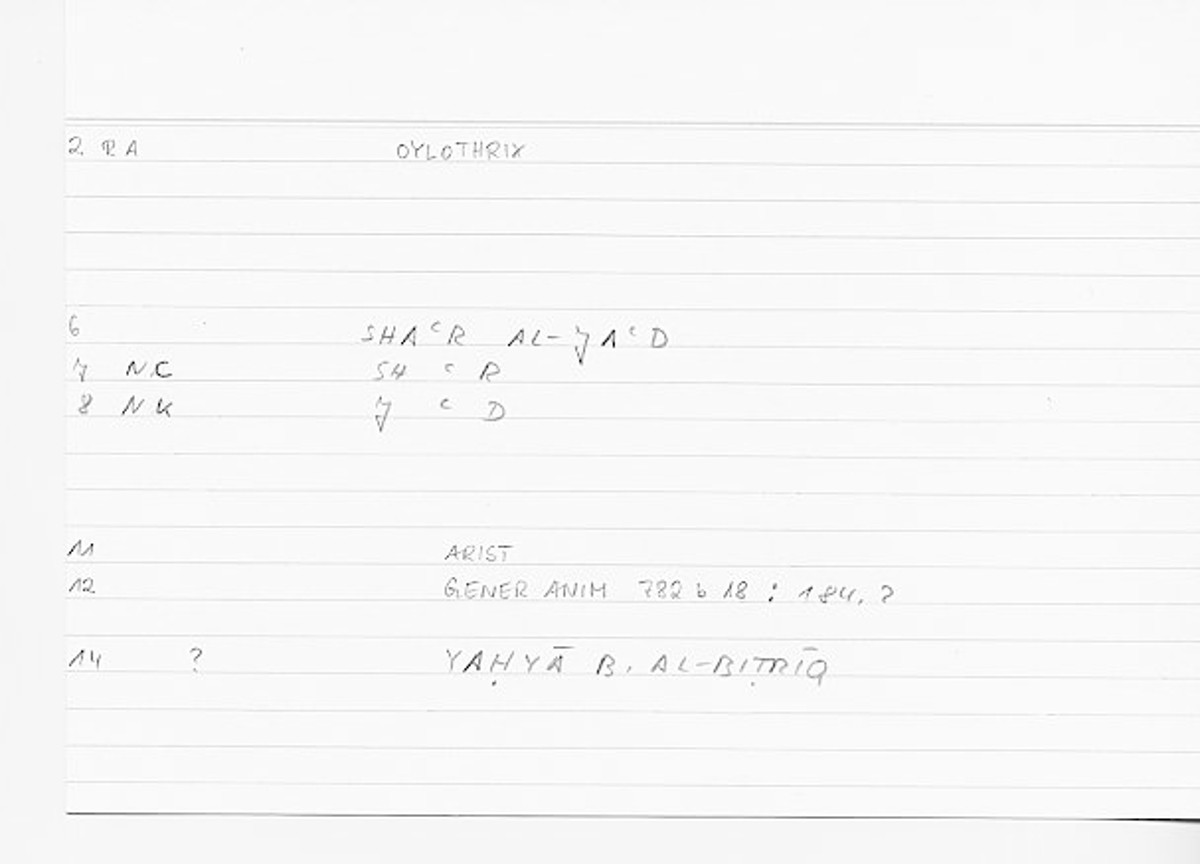 2 RA OYLOTHRIX
6 SHAᶜR AL-JAᶜD
7 NC SH ᶜ R
8 NK J ᶜ D
11 ARIST
12 GENER ANIM 782 b 18 : 184, 2
14 ? YAḤYĀ B. AL-BIṬRĪQ